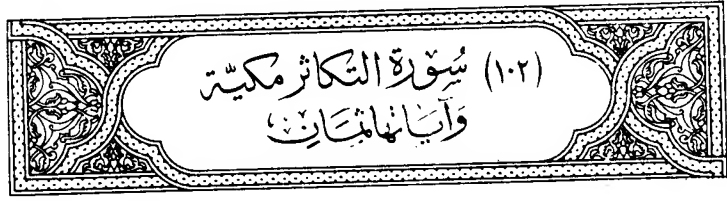 (١٠٢) سُورَة التكاثر مكيّة
وَآيَاتها ثمَانِ